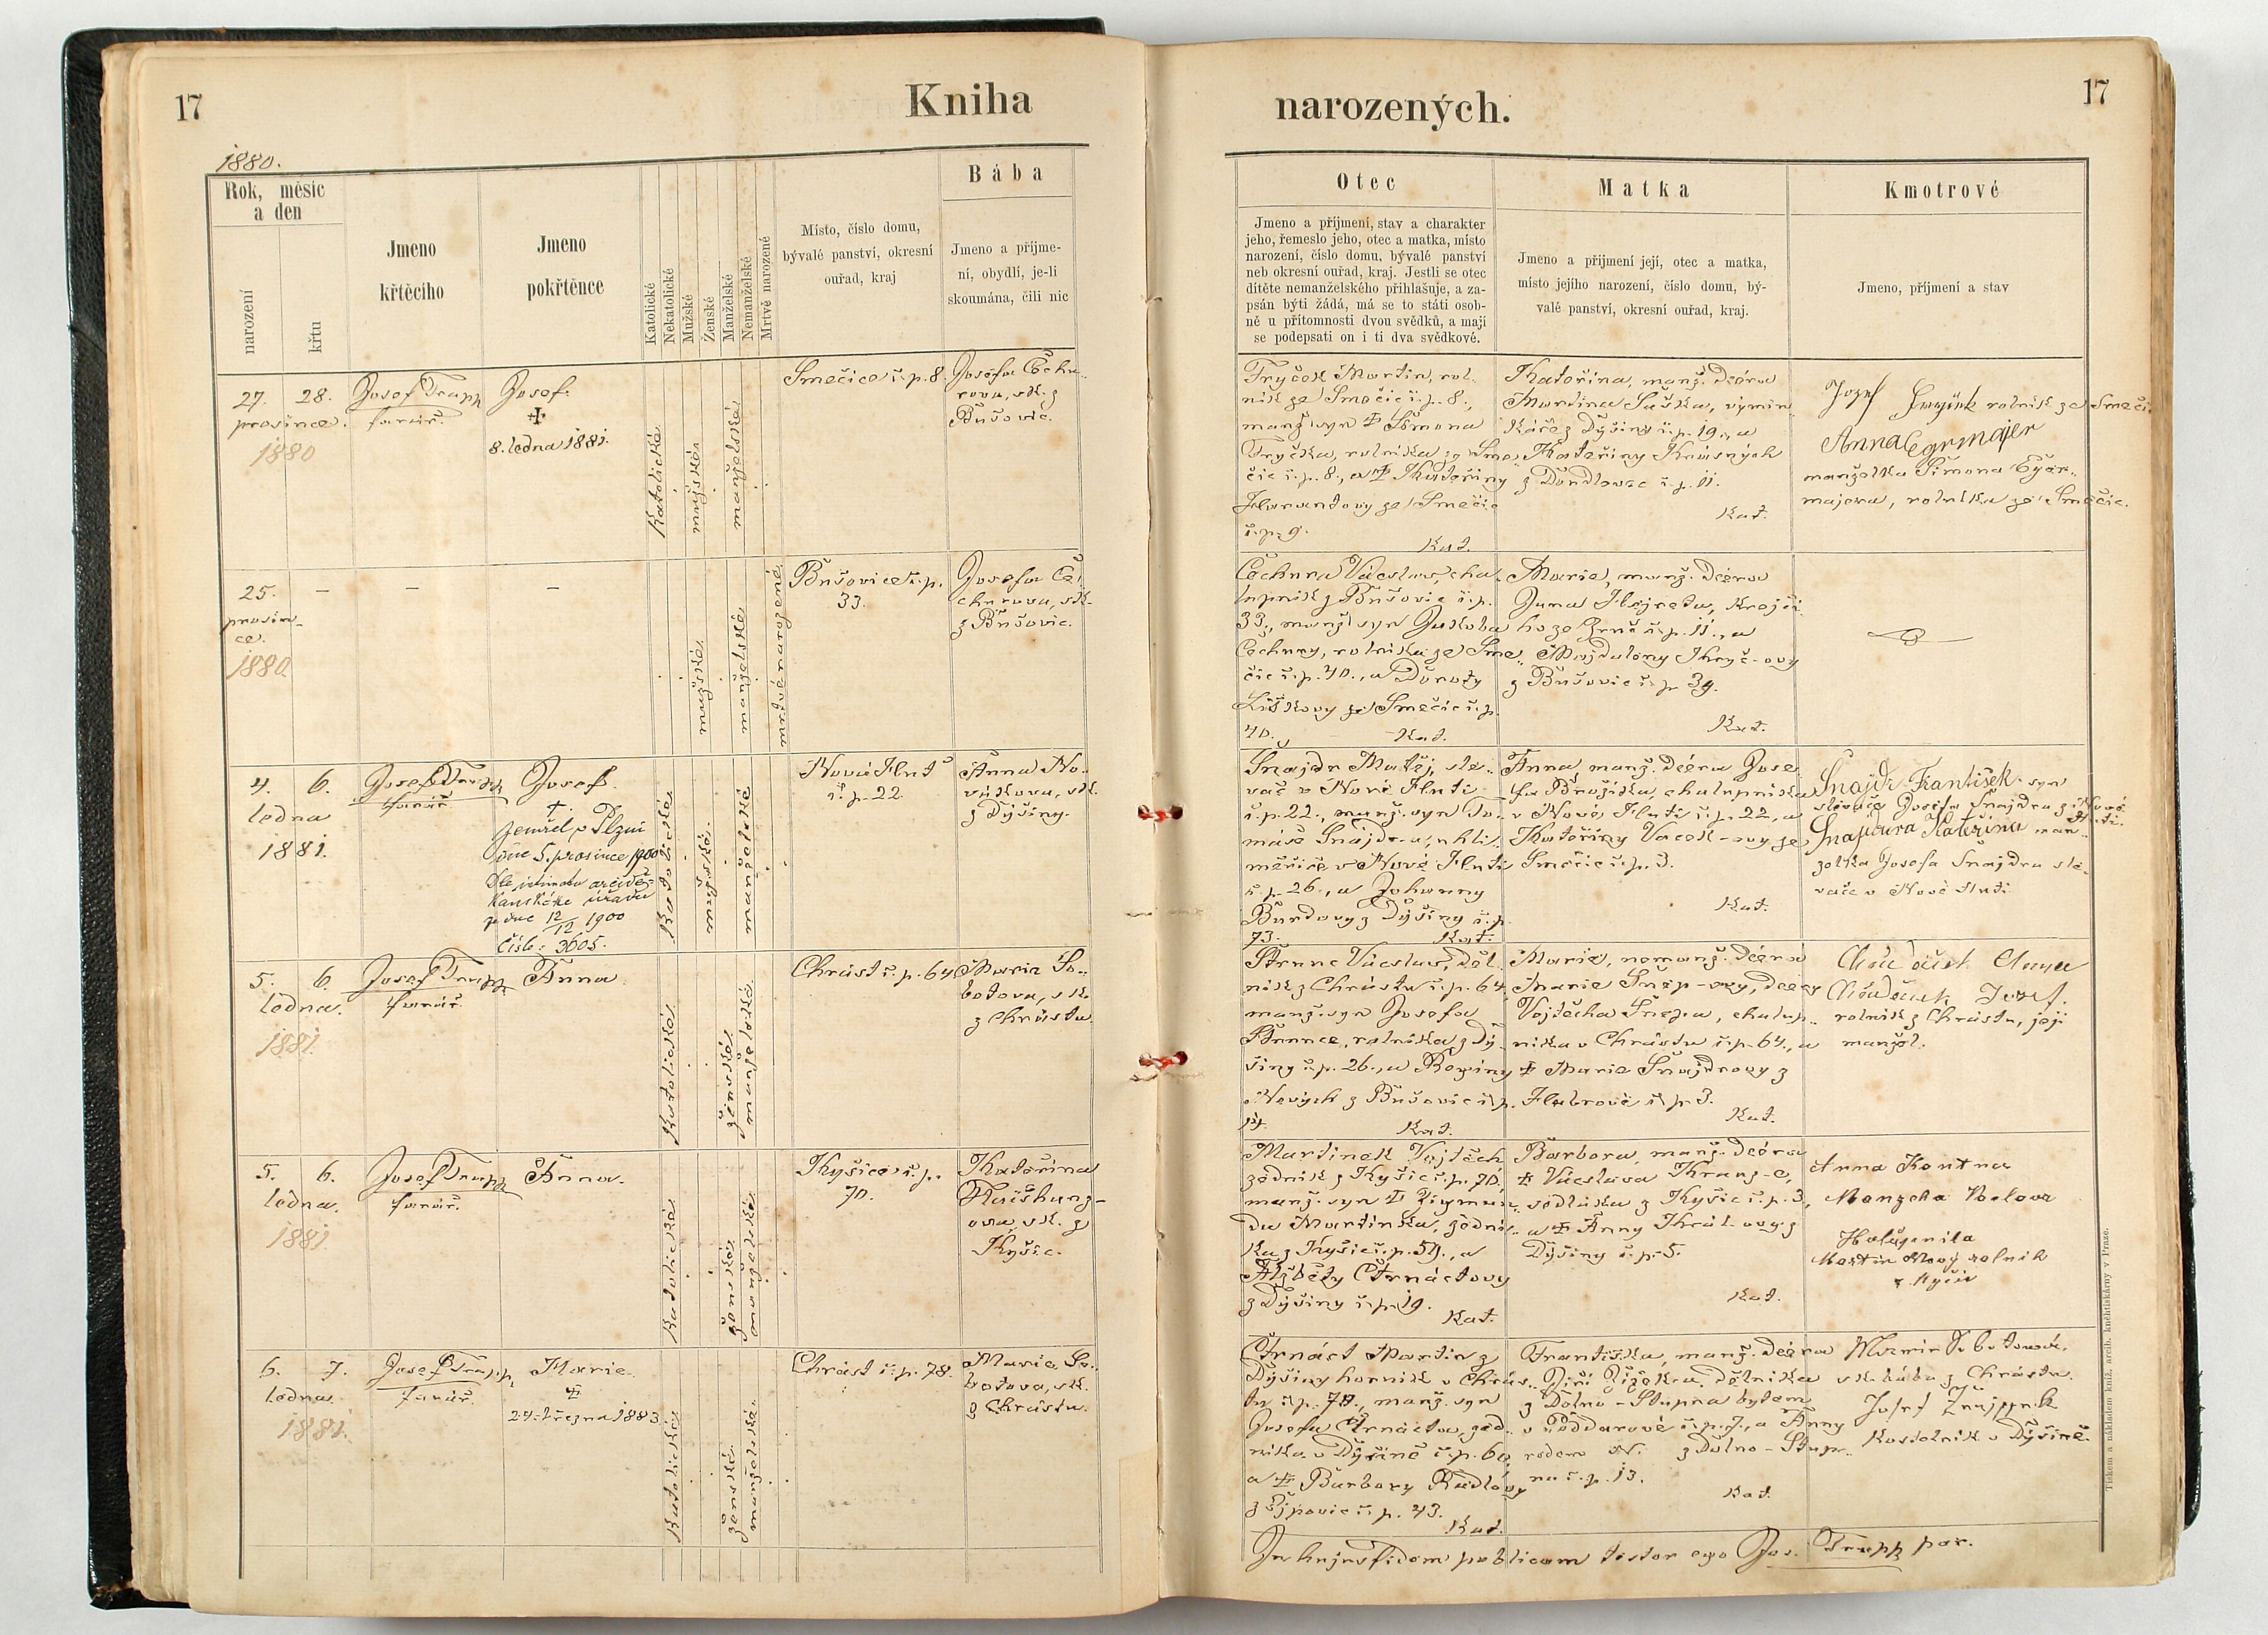 17
Kniha
narozených.
17
1880.
Rok, měsíc
a den
narození
křtu
Jmeno
křtěcího
Jmeno
pokřtěnce
Katolické
Nekatolické
Mužské
Ženské
Manželské
Nemanželské
Mrtvě narozené
Místo, číslo domu,
bývalé panství, okresní
ouřad, kraj
Bába
Jmeno a příjme-
ní, obydlí, je-li
skoumána, čili nic
Otec
Jmeno a příjmení, stav a charakter
jeho, řemeslo jeho, otec a matka, místo
narození, číslo domu, bývalé panství
neb okresní ouřad, kraj. Jestli se otec
dítěte nemanželského přihlašuje, a za-
psán býti žádá, má se to státi osob-
ně u přítomnosti dvou svědků, a mají
se podepsati on i ti dva svědkové.
Matka
Jmeno a přijmení její, otec a matka,
místo jejího narození, číslo domu, bý-
valé panství, okresní ouřad, kraj.
Kmotrové
Jmeno, příjmení a stav
27. 28.
prosince.
1880
Josef Trapp
farář.
Josef.
8. ledna 1881.
Katolické
mužské
manželské
Smečice č. p. 8.
Josefa Čechu-
rova, sk. z
Bušovic.
Tryček Martin, rol-
ník ze Smečic č. p. 8.,
manž. syn Šimona
Tryčka, rolníka ze Sme-
čic č. p. 8., a Kateřiny
ze Smečic
č. p. 9.
Kat.
Kateřina, manž. dcera
Martina Saška, výmin-
káře z Dýšiny č. p. 19., a
Kateřiny Krásných
č. p. 11.
Kat.
Jozef rolník ze Smečic
Anna Egrmajer
manželka Šimona Egr-
majera, rolníka ze Smečic.
25.
prosin-
ce.
1880.
–
–
–
mužské
manželské
mrtvě narozené
Bušovice č. p.
33.
Josefa Če-
churova, sk.
z Bušovic.
Čechura Václav, cha-
lupník z Bušovic č. p.
33., manž. syn Jakoba
Čechury, rolníka ze Sme-
čic č. p. 40., a Doroty
Liškovy ze Smečic č. p.
40.
Kat.
Marie, manž. dcera
Jana Hlejreta, krejčí-
ho ze č. p. 11., a
Majdaleny
z Bušovic č. p. 39.
Kat.
4. 6.
ledna
1881.
Josef Trapp
farář.
Josef.
†.
zemřel v Plzni
dne 5. prosince 1900
Dle intimatu arciděkanského úřadu
ze dne 12/12 1900
číslo: 3605.
Katolické
mužské
manželské
Nová Huť
č. p. 22.
Anna No-
vákova, sk.
z Dýšiny.
Šnajdr Matěj, slé-
vač v Nové Huti
č. p. 22., manž. syn To-
máše Šnajdra, uhlí-
měřiče v Nové Huti
č. p. 26., a Johanny
z Dýšiny č. p.
73.
Kat.
Anna, manž. dcera Jose-
fa chalupníka
v Nové Huti č. p. 22., a
Kateřiny Vacek-ovy ze
Smečic č. p. 3.
Kat.
Šnajdr František syn
slévače Josefa Šnajdra z Nové
Huti.
Šnajdura Kateřina man-
želka Josefa Šnajdra slé-
vače v Nové Huti.
5. 6.
ledna.
1881.
Josef Trapp
farář.
Anna
Katolické
ženské
manželské
Chrást č. p. 64
Marie So-
botova, sk.
z Chrástu.
Václav, děl-
ník z Chrástu č. p. 64.,
manž. syn Josefa
rolníka z Dý-
šiny č. p. 26., a Rosiny
Nových z Bušovic č. p.
14.
Kat.
Marie, nemanž. dcera
Marie dcery
Vojtěcha chalup-
níka v Chrástu č. p. 64., a
Marie Šnajdrovy z
č. p. 3.
Kat.
Anna
rolník z Chrástu, její
manžel.
5. 6.
ledna.
1881.
Josef Trapp
farář.
Anna.
Katolické
ženské
manželské
Kyšice č. p.
70.
Kateřina
ova, sk. z
Kyšic.
Martinek Vojtěch
zedník z Kyšic č. p. 70.,
manž. syn Zigmun-
da Martinka, zední-
ka z Kyšic č. p. 59., a
Alžběty Čtrnáctovy
z Dýšiny č. p. 19.
Kat.
Barbora, manž. dcera
Václava Kranz-e,
sedláka z Kyšic č. p. 3.,
a Anny Král-ovy z
Dýšiny č. p. 5.
Kat.
Anna Kontna
Martin Nový rolnik
z Kyšic
6. 7.
ledna.
1881.
Josef Trapp,
farář.
Marie.
24. března 1883
Katolické
ženské
manželské
Chrást č. p. 78.
Marie So-
botova, sk.
z Chrástu.
Čtrnáct Martin z
Dýšiny horník v Chrás-
tu č. p. 78., manž. syn
Josefa Čtrnácta, zed-
níka v Dýšině č. p. 60,
a Barbory
z Ejpovic č. p. 43.
Kat.
Františka, manž. dcera
Jiří Žižka, dělníka
z Dolno-Stupna bytem
č. p. 7., a Anny
rodem N. z Dolno-Stup-
na č. p. 13.
Kat.
Marie Sobotová,
sk. bába z Chrástu.
Josef
Kostelník v Dýšině.
In hujus fidem publicam testor ego Jos. Trapp par.
Tiskem a nákladem kníž. arcib. knihtiskárny v Praze.